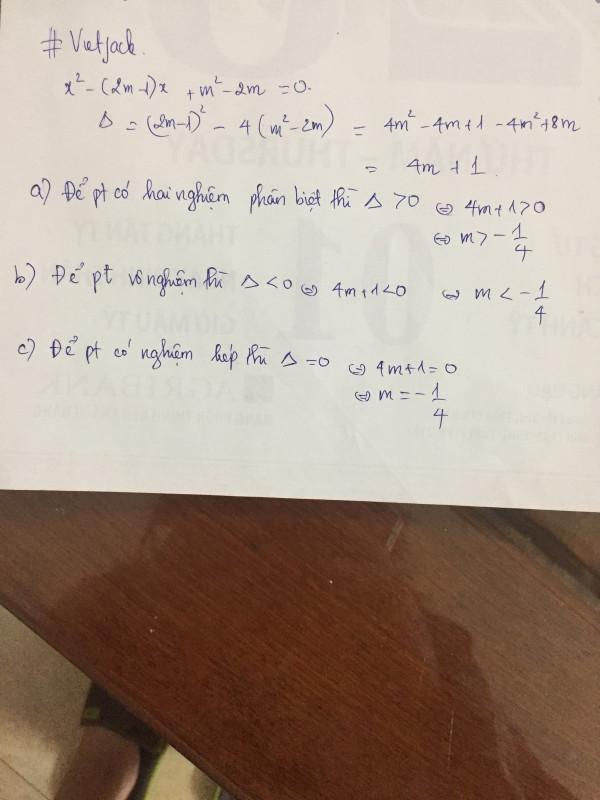 # Vietjack.
x² - (2m-1)x + m² - 2m = 0.
Δ = (2m-1)² - 4(m² - 2m) = 4m² - 4m + 1 - 4m² + 8m
= 4m + 1.
a) Để pt có hai nghiệm phân biệt thì Δ > 0 ⇔ 4m+1 > 0
⇔ m > -1/4
b) Để pt vô nghiệm thì Δ < 0 ⇔ 4m+1 < 0 ⇔ m < -1/4
c) Để pt có nghiệm kép thì Δ = 0 ⇔ 4m+1 = 0
⇔ m = -1/4